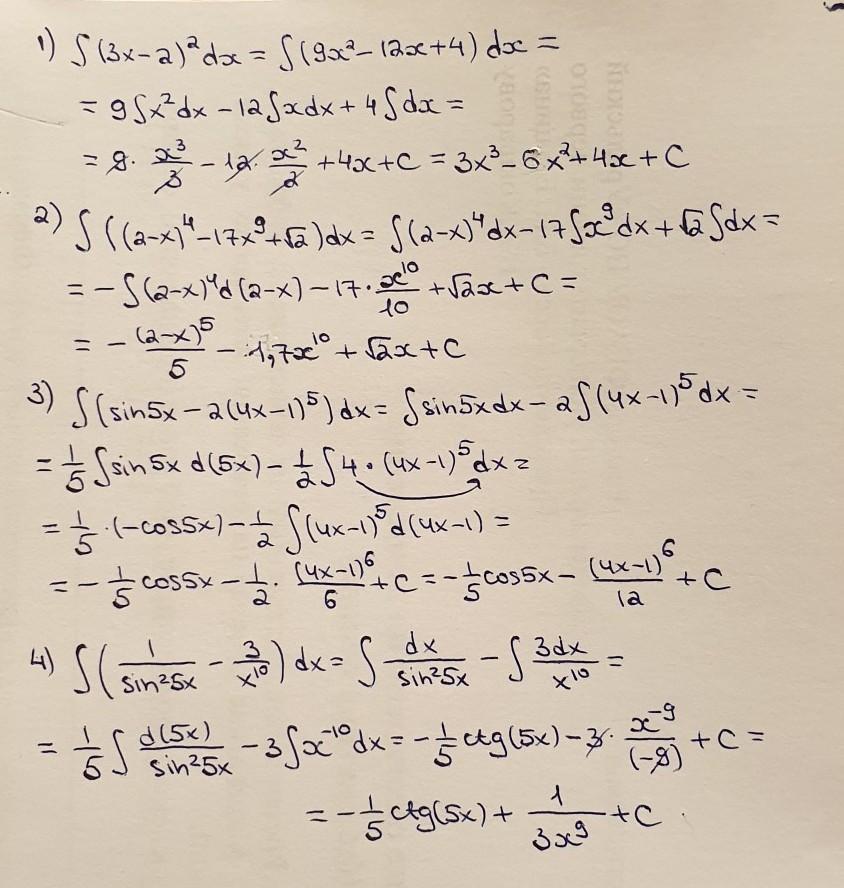 1) ∫(3x-2)²dx = ∫(9x²-12x+4) dx =
= 9∫x²dx - 12∫xdx + 4∫dx =
= 9 · x³/3 - 12 · x²/2 + 4x + C = 3x³ - 6x² + 4x + C
2) ∫((2-x)⁴-17x⁹+√2)dx = ∫(2-x)⁴dx - 17∫x⁹dx + √2∫dx =
= -∫(2-x)⁴d(2-x) - 17 · x¹⁰/10 + √2x + C =
= - (2-x)⁵/5 - 1,7x¹⁰ + √2x + C
3) ∫(sin5x - 2(4x-1)⁵)dx = ∫sin5xdx - 2∫(4x-1)⁵dx =
= 1/5 ∫sin5x d(5x) - 1/2 ∫4 · (4x-1)⁵dx =
= 1/5 · (-cos5x) - 1/2 ∫(4x-1)⁵d(4x-1) =
= - 1/5 cos5x - 1/2 · (4x-1)⁶/6 + C = - 1/5 cos5x - (4x-1)⁶/12 + C
4) ∫(1/sin²5x - 3/x¹⁰) dx = ∫ dx/sin²5x - ∫ 3dx/x¹⁰ =
= 1/5 ∫ d(5x)/sin²5x - 3∫x⁻¹⁰dx = - 1/5 ctg(5x) - 3 · x⁻⁹/(-9) + C =
= - 1/5 ctg(5x) + 1/3x⁹ + C